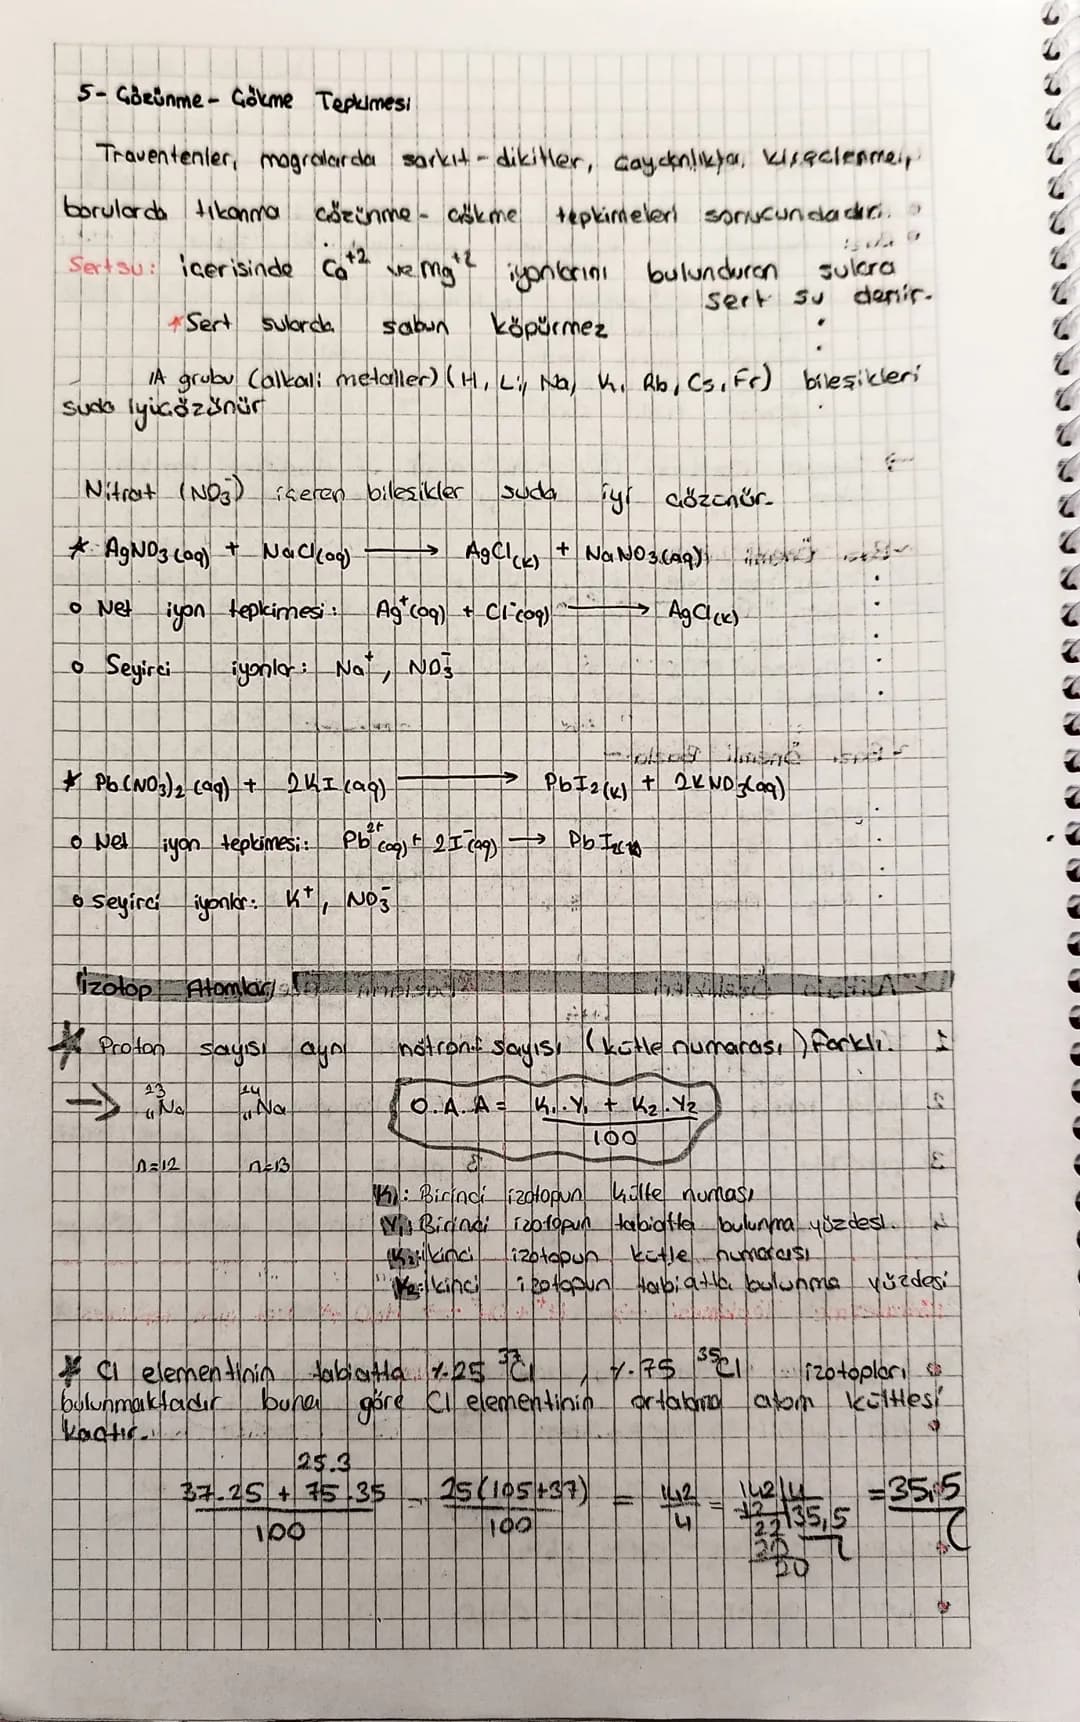 5- Çözünme - Çökme Tepkimesi
Traventenler, mağralarda sarkıt - dikitler, çaydanlıkta, kireçlenme,
borularda tıkanma çözünme - çökme tepkimeleri sonucundadır.
Sert su: içerisinde Ca⁺² ve Mg⁺² iyonlarını bulunduran sulara
sert su denir.
*Sert sularda sabun köpürmez
1A grubu (alkali metaller) (H, Li, Na, K, Rb, Cs, Fr) bileşikleri
suda iyi çözünür
Nitrat (NO₃⁻) içeren bileşikler suda iyi çözünür.
* AgNO₃(aq) + NaCl(aq) → AgCl(k) + NaNO₃(aq)
o Net iyon tepkimesi: Ag⁺(aq) + Cl⁻(aq) → AgCl(k)
o Seyirci iyonlar: Na⁺, NO₃⁻
* Pb(NO₃)₂ (aq) + 2KI (aq) → PbI₂(k) + 2KNO₃(aq)
o Net iyon tepkimesi: Pb²⁺(aq) + 2I⁻(aq) → PbI₂(k)
o seyirci iyonlar: K⁺, NO₃⁻
İzotop Atomlar
* Proton sayısı aynı nötron sayısı (kütle numarası) farklı.
→ ²³₁₁Na ²⁴₁₁Na O.A.A = K₁.Y₁ + K₂.Y₂
100
n=12 n=13
K₁: Birinci izotopun kütle numası
Y₁: Birinci izotopun tabiatta bulunma yüzdesi.
K₂: İkinci izotopun kütle numarası
İkinci izotopun tabiatta bulunma yüzdesi
* Cl elementinin tabiatta %25 ³⁷Cl, %75 ³⁵Cl izotopları
bulunmaktadır buna göre Cl elementinin ortalama atom kütlesi
kaçtır.
25.3
37.25 + 75.35 = 25(105+37) = 142 = 142 4 = 35,5
100 100 4 12 35,5
22
20
20